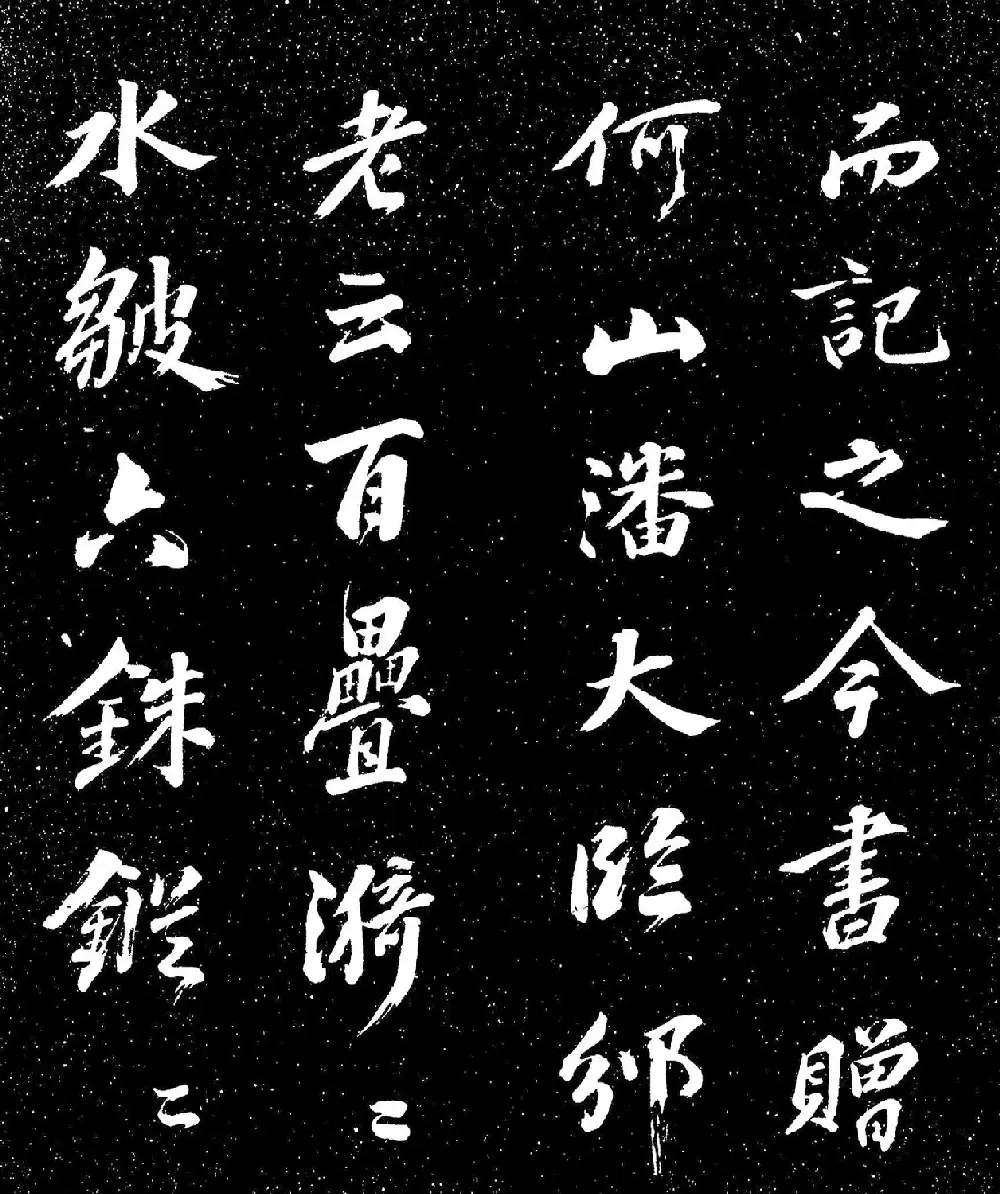 而記之今書贈
何山潘大臨邠
老云百疊漪〻
水皺六銖鏦〻